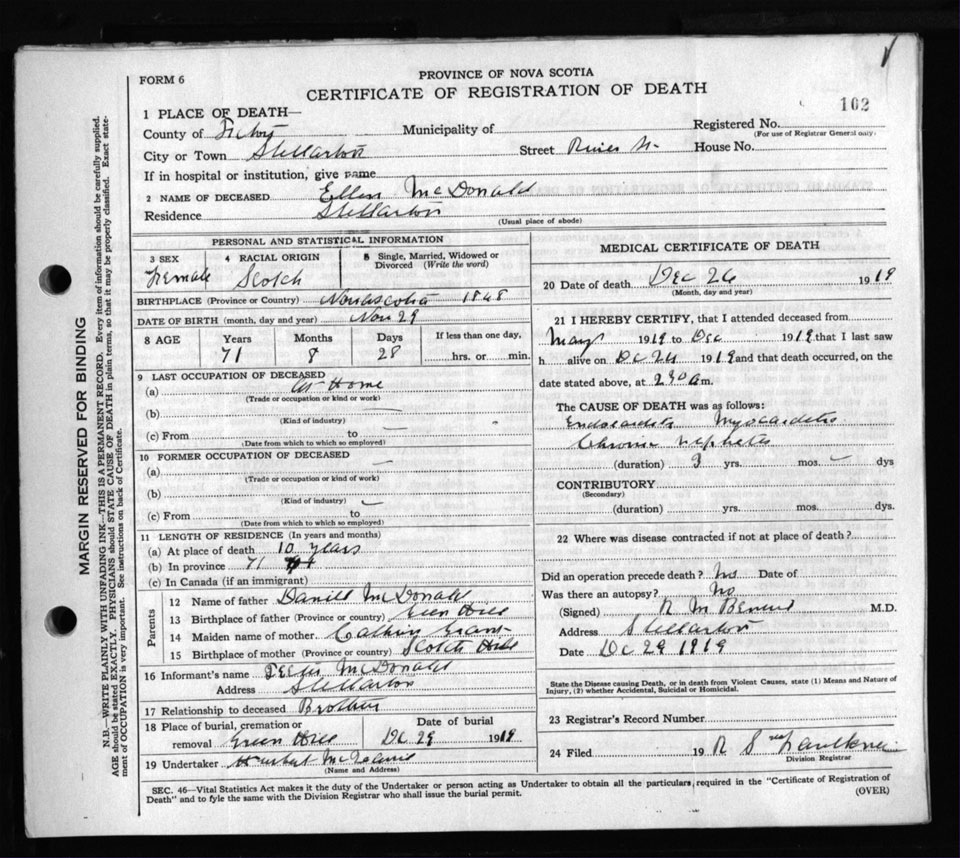 FORM 6
PROVINCE OF NOVA SCOTIA
CERTIFICATE OF REGISTRATION OF DEATH
102
1 PLACE OF DEATH—
County of Pictou Municipality of Registered No.
(For use of Registrar General only.
City or Town Stellarton Street House No.
If in hospital or institution, give name
2 NAME OF DECEASED Ellen McDonald
Residence Stellarton
(Usual place of abode)
PERSONAL AND STATISTICAL INFORMATION
3 SEX Female
4 RACIAL ORIGIN Scotch
5 Single, Married, Widowed or Divorced (Write the word)
BIRTHPLACE (Province or Country) Nova Scotia 1848
DATE OF BIRTH (month, day and year) Nov 29
8 AGE Years 71 Months 8 Days 28 If less than one day, hrs. or min.
9 LAST OCCUPATION OF DECEASED
(a) At Home
(Trade or occupation or kind or work)
(b)
(Kind of industry)
(c) From to
(Date from which to which so employed)
10 FORMER OCCUPATION OF DECEASED
(a)
(Trade or occupation or kind of work)
(b)
(Kind of industry)
(c) From to
(Date from which to which so employed)
11 LENGTH OF RESIDENCE (In years and months)
(a) At place of death 10 years
(b) In province 71
(c) In Canada (if an immigrant)
Parents
12 Name of father Daniel McDonald
13 Birthplace of father (Province or country) Green Hill
14 Maiden name of mother Grant
15 Birthplace of mother (Province or country) Scotch Hill
16 Informant's name McDonald
Address Stellarton
17 Relationship to deceased Brother
18 Place of burial, cremation or removal Green Hill
Date of burial Dc 29 1919
19 Undertaker
(Name and Address)
MEDICAL CERTIFICATE OF DEATH
20 Date of death Dec 26 1919
(Month, day and year)
21 I HEREBY CERTIFY, that I attended deceased from
1919 to Dec 1919 that I last saw
h alive on Dc 24 1919 and that death occurred, on the
date stated above, at 230 a m.
The CAUSE OF DEATH was as follows:
Endocarditis Myocarditis
Chronic nephritis
(duration) 3 yrs. mos. dys
CONTRIBUTORY
(Secondary)
(duration) yrs. mos. dys.
22 Where was disease contracted if not at place of death?
Did an operation precede death? No Date of
Was there an autopsy? No
(Signed) M.D.
Address Stellarton
Date Dc 29 1919
State the Disease causing Death, or in death from Violent Causes, state (1) Means and Nature of
Injury, (2) whether Accidental, Suicidal or Homicidal.
23 Registrar's Record Number
24 Filed 19
Division Registrar
SEC. 46—Vital Statistics Act makes it the duty of the Undertaker or person acting as Undertaker to obtain all the particulars required in the "Certificate of Registration of
Death" and to fyle the same with the Division Registrar who shall issue the burial permit. (OVER)
MARGIN RESERVED FOR BINDING
N.B.—WRITE PLAINLY WITH UNFADING INK—THIS IS A PERMANENT RECORD. Every item of information should be carefully supplied.
AGE should be stated EXACTLY. PHYSICIANS should STATE CAUSE OF DEATH in plain terms, so that it may be properly classified. Exact state-
ment of OCCUPATION is very important. See instructions on back of Certificate.